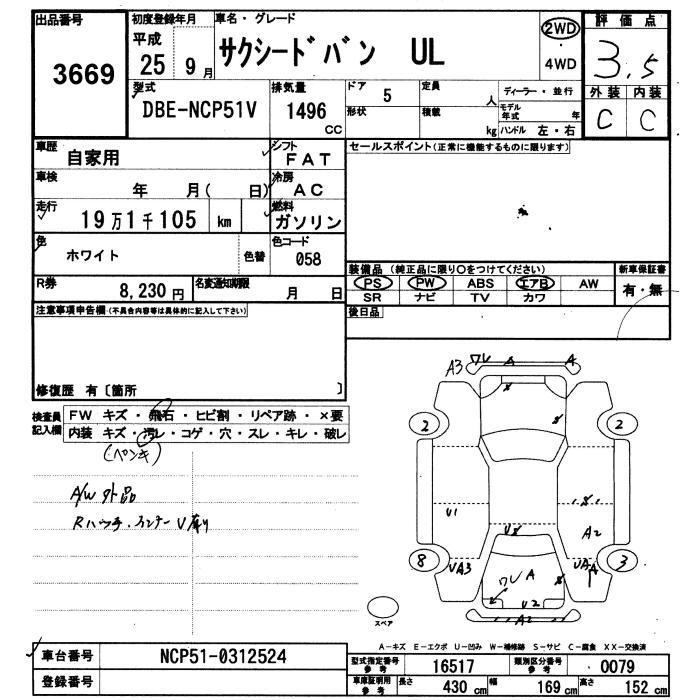 出品番号 初度登録年月 車名・グレード 評価点
3669 平成 25 9月 サクシードバン UL 2WD ・ 4WD 3.5
型式 排気量 ドア 定員 ディーラー・並行 外装 内装
DBE-NCP51V 1496 CC 5 人 モデル年式 年 C C
形状 積載 kg ハンドル 左・右
車歴 自家用 シフト FAT セールスポイント(正常に機能するものに限ります)
車検 年 月( 日) 冷房 AC
走行 19万1千105 km 燃料 ガソリン
色 ホワイト 色替 色コード 058
装備品 (純正品に限り○をつけてください) 新車保証書
R券 8,230円 名変通知期限 月 日
PS PW ABS エアB AW 有・無
SR ナビ TV カワ
注意事項申告欄(不具合内容等は具体的に記入して下さい) 後日品
修復歴 有〔箇所 〕
検査員記入欄 FW キズ・飛石・ヒビ割・リペア跡・×要
内装 キズ・汚レ・コゲ・穴・スレ・キレ・破レ
(ペンキ)
A/W 外品
A3 ワレ A A
2 2
U1 A2
U8
8 UA3 ワレ A UA A 3
U2
A2
スペア
A-キズ E-エクボ U-凹み W-補修跡 S-サビ C-腐食 XX-交換済
車台番号 NCP51-0312524 型式指定番号 参考 16517 類別区分番号 参考 0079
登録番号 車庫証明用 参考 長さ 430 cm 幅 169 cm 高さ 152 cm